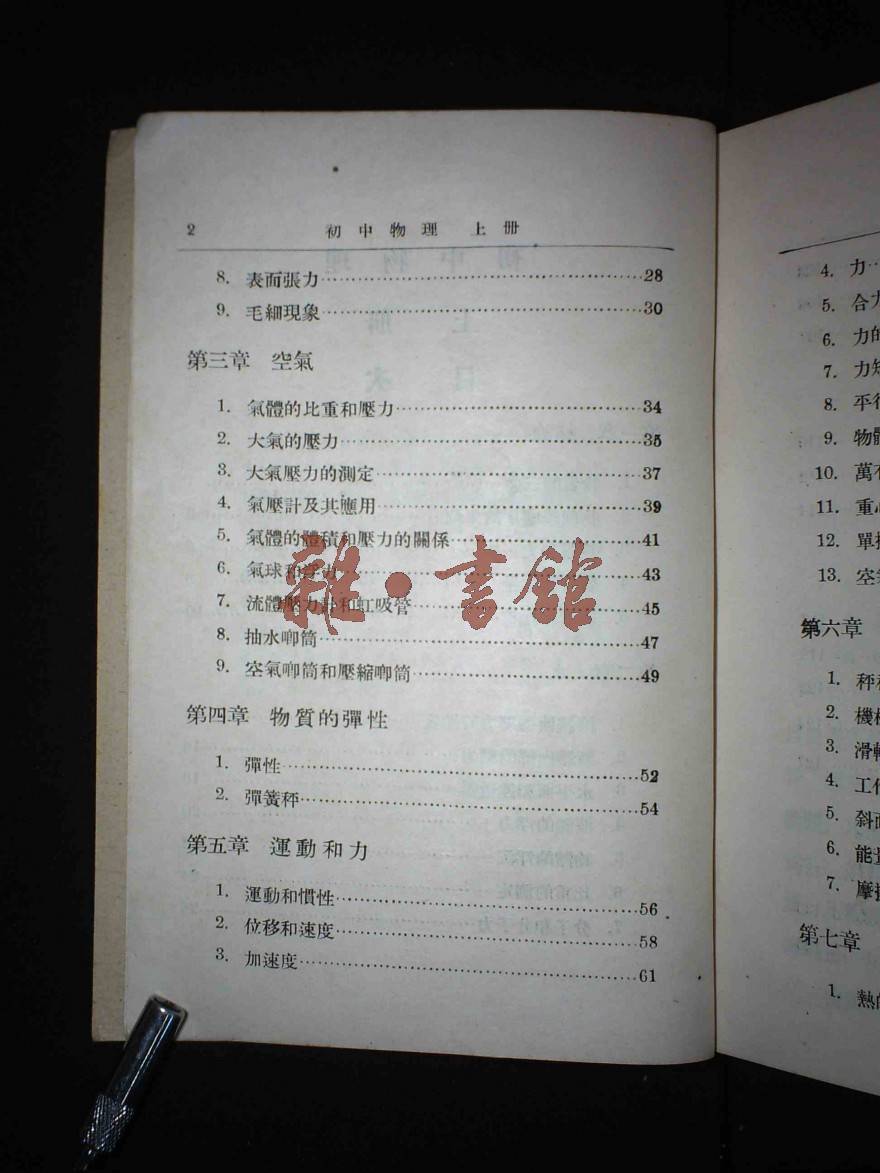 2 初中物理 上册
8. 表面張力 28
9. 毛細現象 30
第三章 空氣
1. 氣體的比重和壓力 34
2. 大氣的壓力 35
3. 大氣壓力的測定 37
4. 氣壓計及其應用 39
5. 氣體的體積和壓力的關係 41
6. 氣球和浮力 43
7. 流體壓力計和虹吸管 45
8. 抽水唧筒 47
9. 空氣唧筒和壓縮唧筒 49
雜·書館
第四章 物質的彈性
1. 彈性 52
2. 彈簧秤 54
第五章 運動和力
1. 運動和慣性 56
2. 位移和速度 58
3. 加速度 61
4. 力
5. 合力
6. 力的
7. 力
8. 平行
9. 物體
10. 萬有
11. 重心
12. 單擺
13. 空氣
第六章
1. 秤
2. 機械
3. 滑輪
4. 工作
5. 斜面
6. 能量
7. 摩擦
第七章
1. 熱的